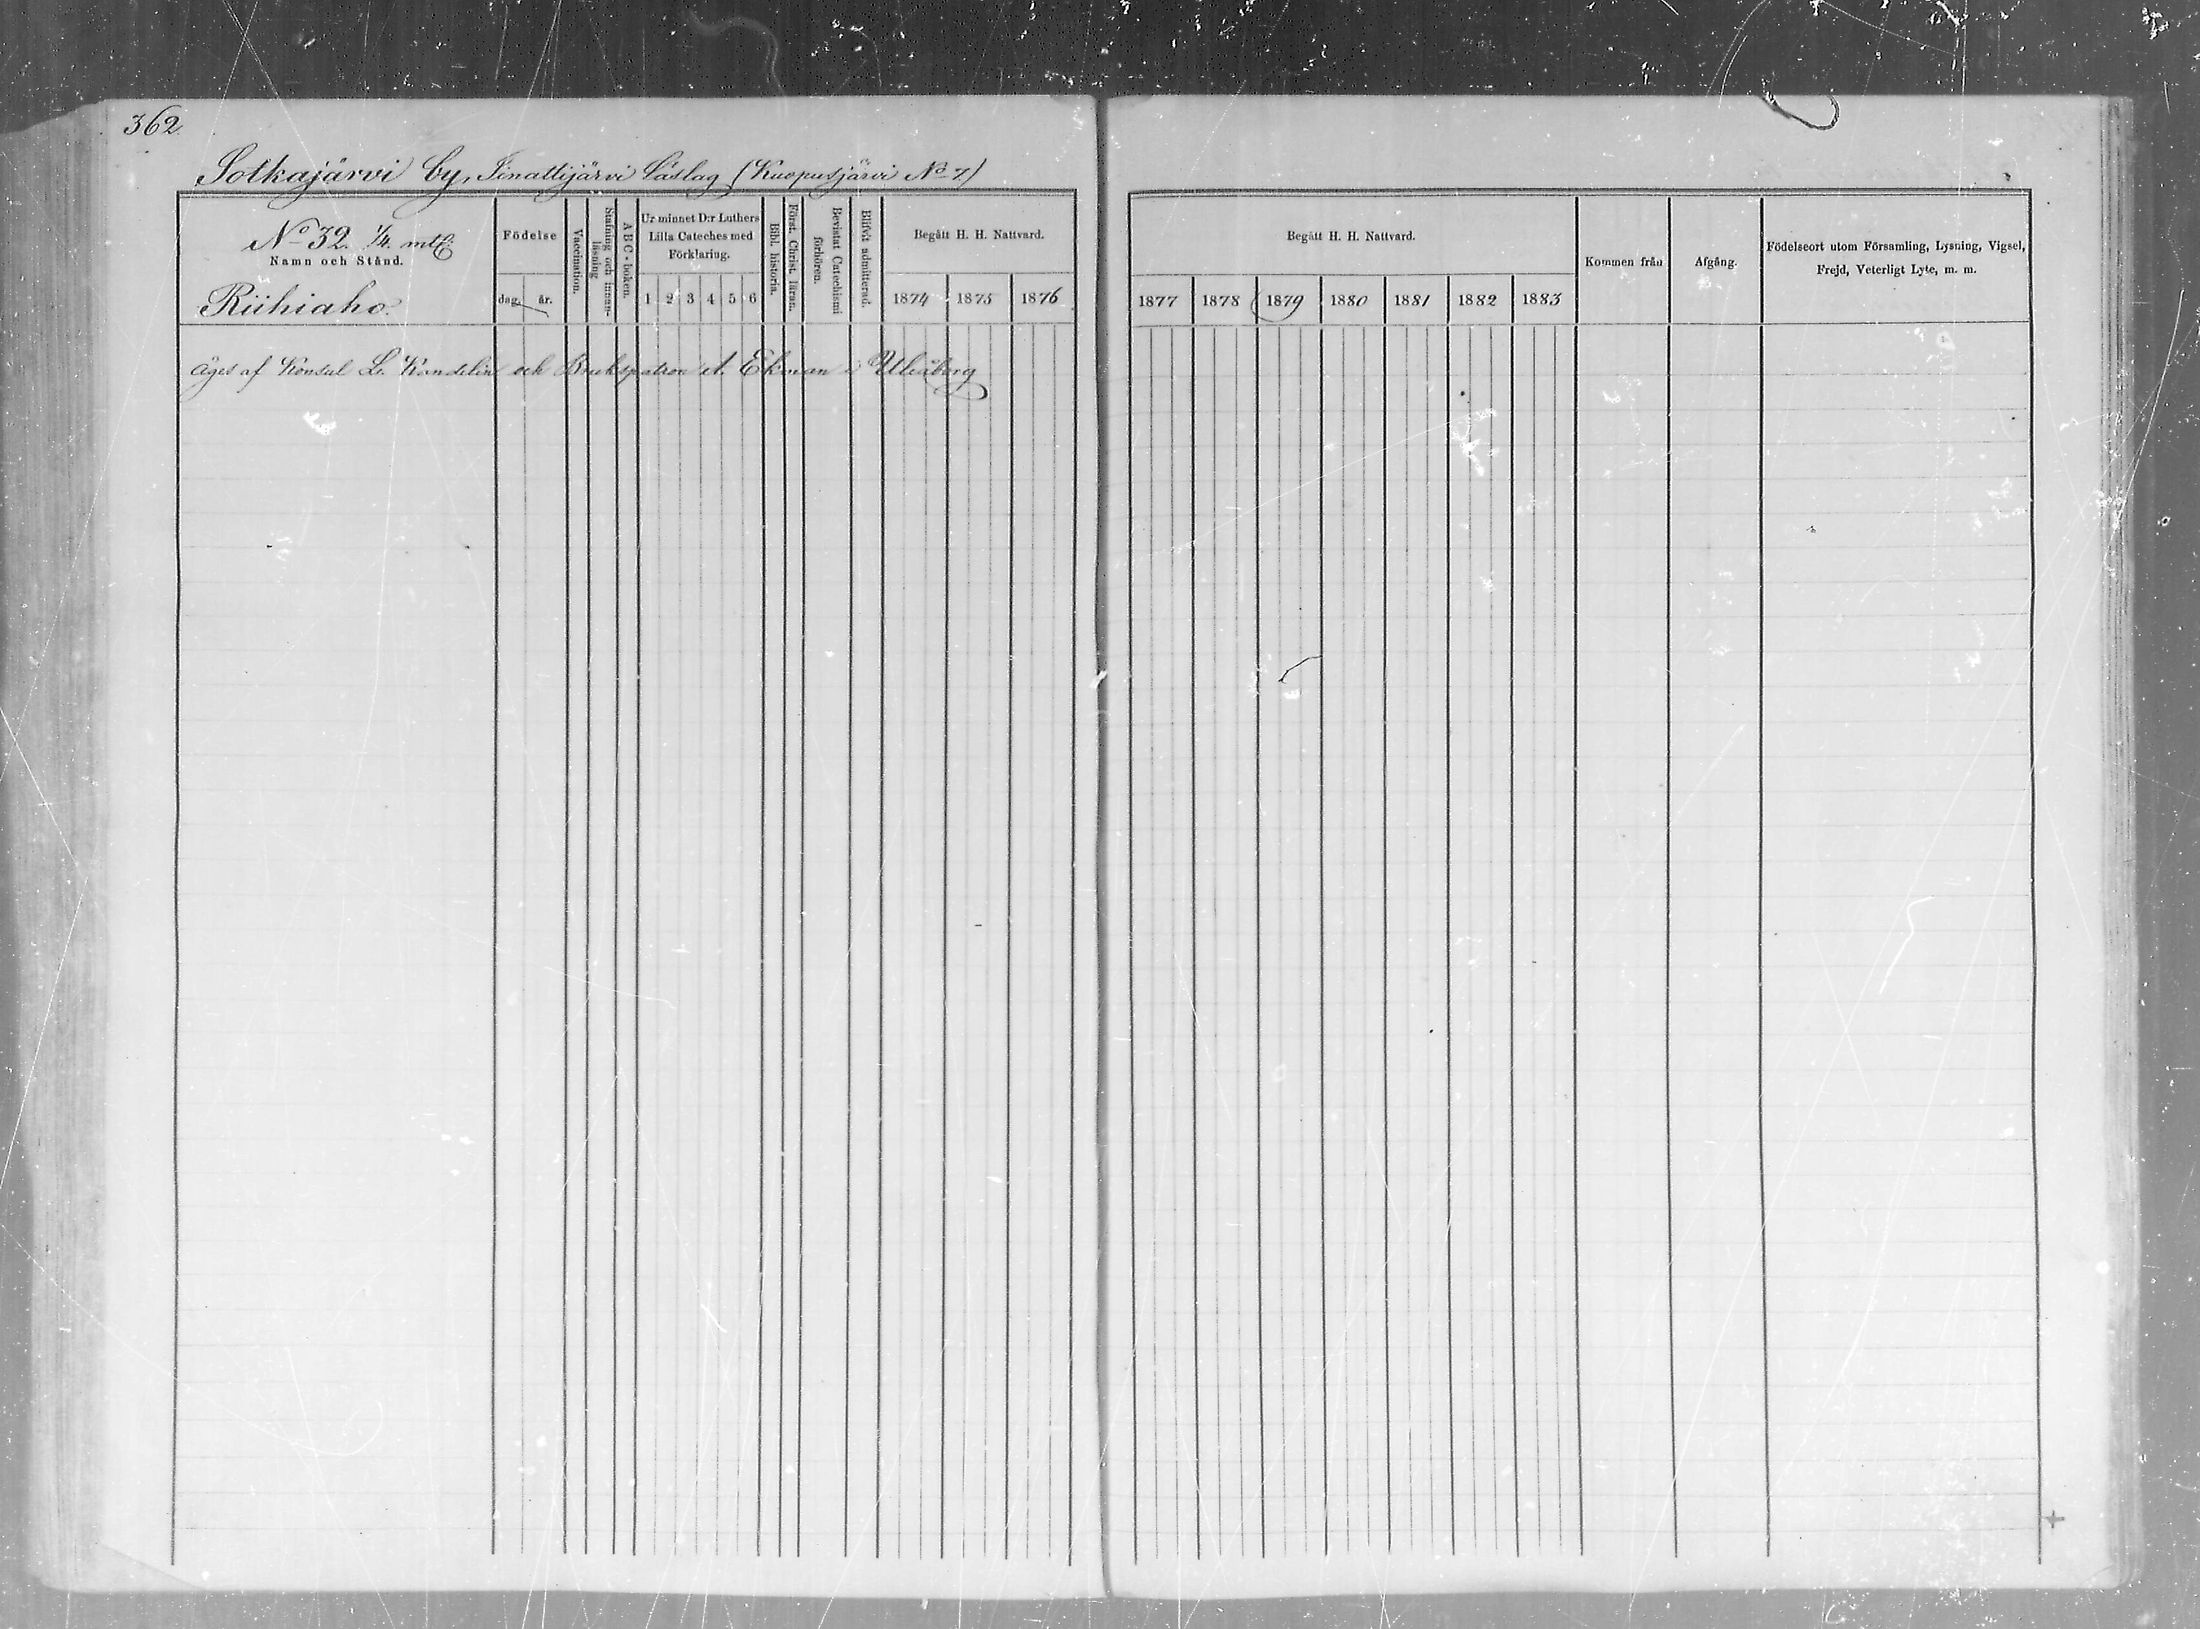 362.
Sotkajärvi by, Sinattijärvi Läslag (Kuopusjärvi No 7.)
No 32. 1/4. mtl:
Namn och Stånd.
Riihiaho.
Födelse
dag. år.
Vaccination.
Stafning och innan-
läsning
A B C - boken.
Ur minnet D:r Luthers
Lilla Cateches med
Förklaring.
1 2 3 4 5 6
Bibl. historia.
Först. Christ. läran.
Bevistat Catechismi
förhören.
Blifvit admitterad.
Begått H. H. Nattvard.
1874 1875 1876
Begått H. H. Nattvard.
1877 1878 1879 1880 1881 1882 1883
Kommen från
Afgång.
Födelseort utom Församling, Lysning, Vigsel,
Frejd, Veterligt Lyte, m. m.
Äges af Konsul L. Kandelin och Brukspatron A. Ekman i Uleåborg